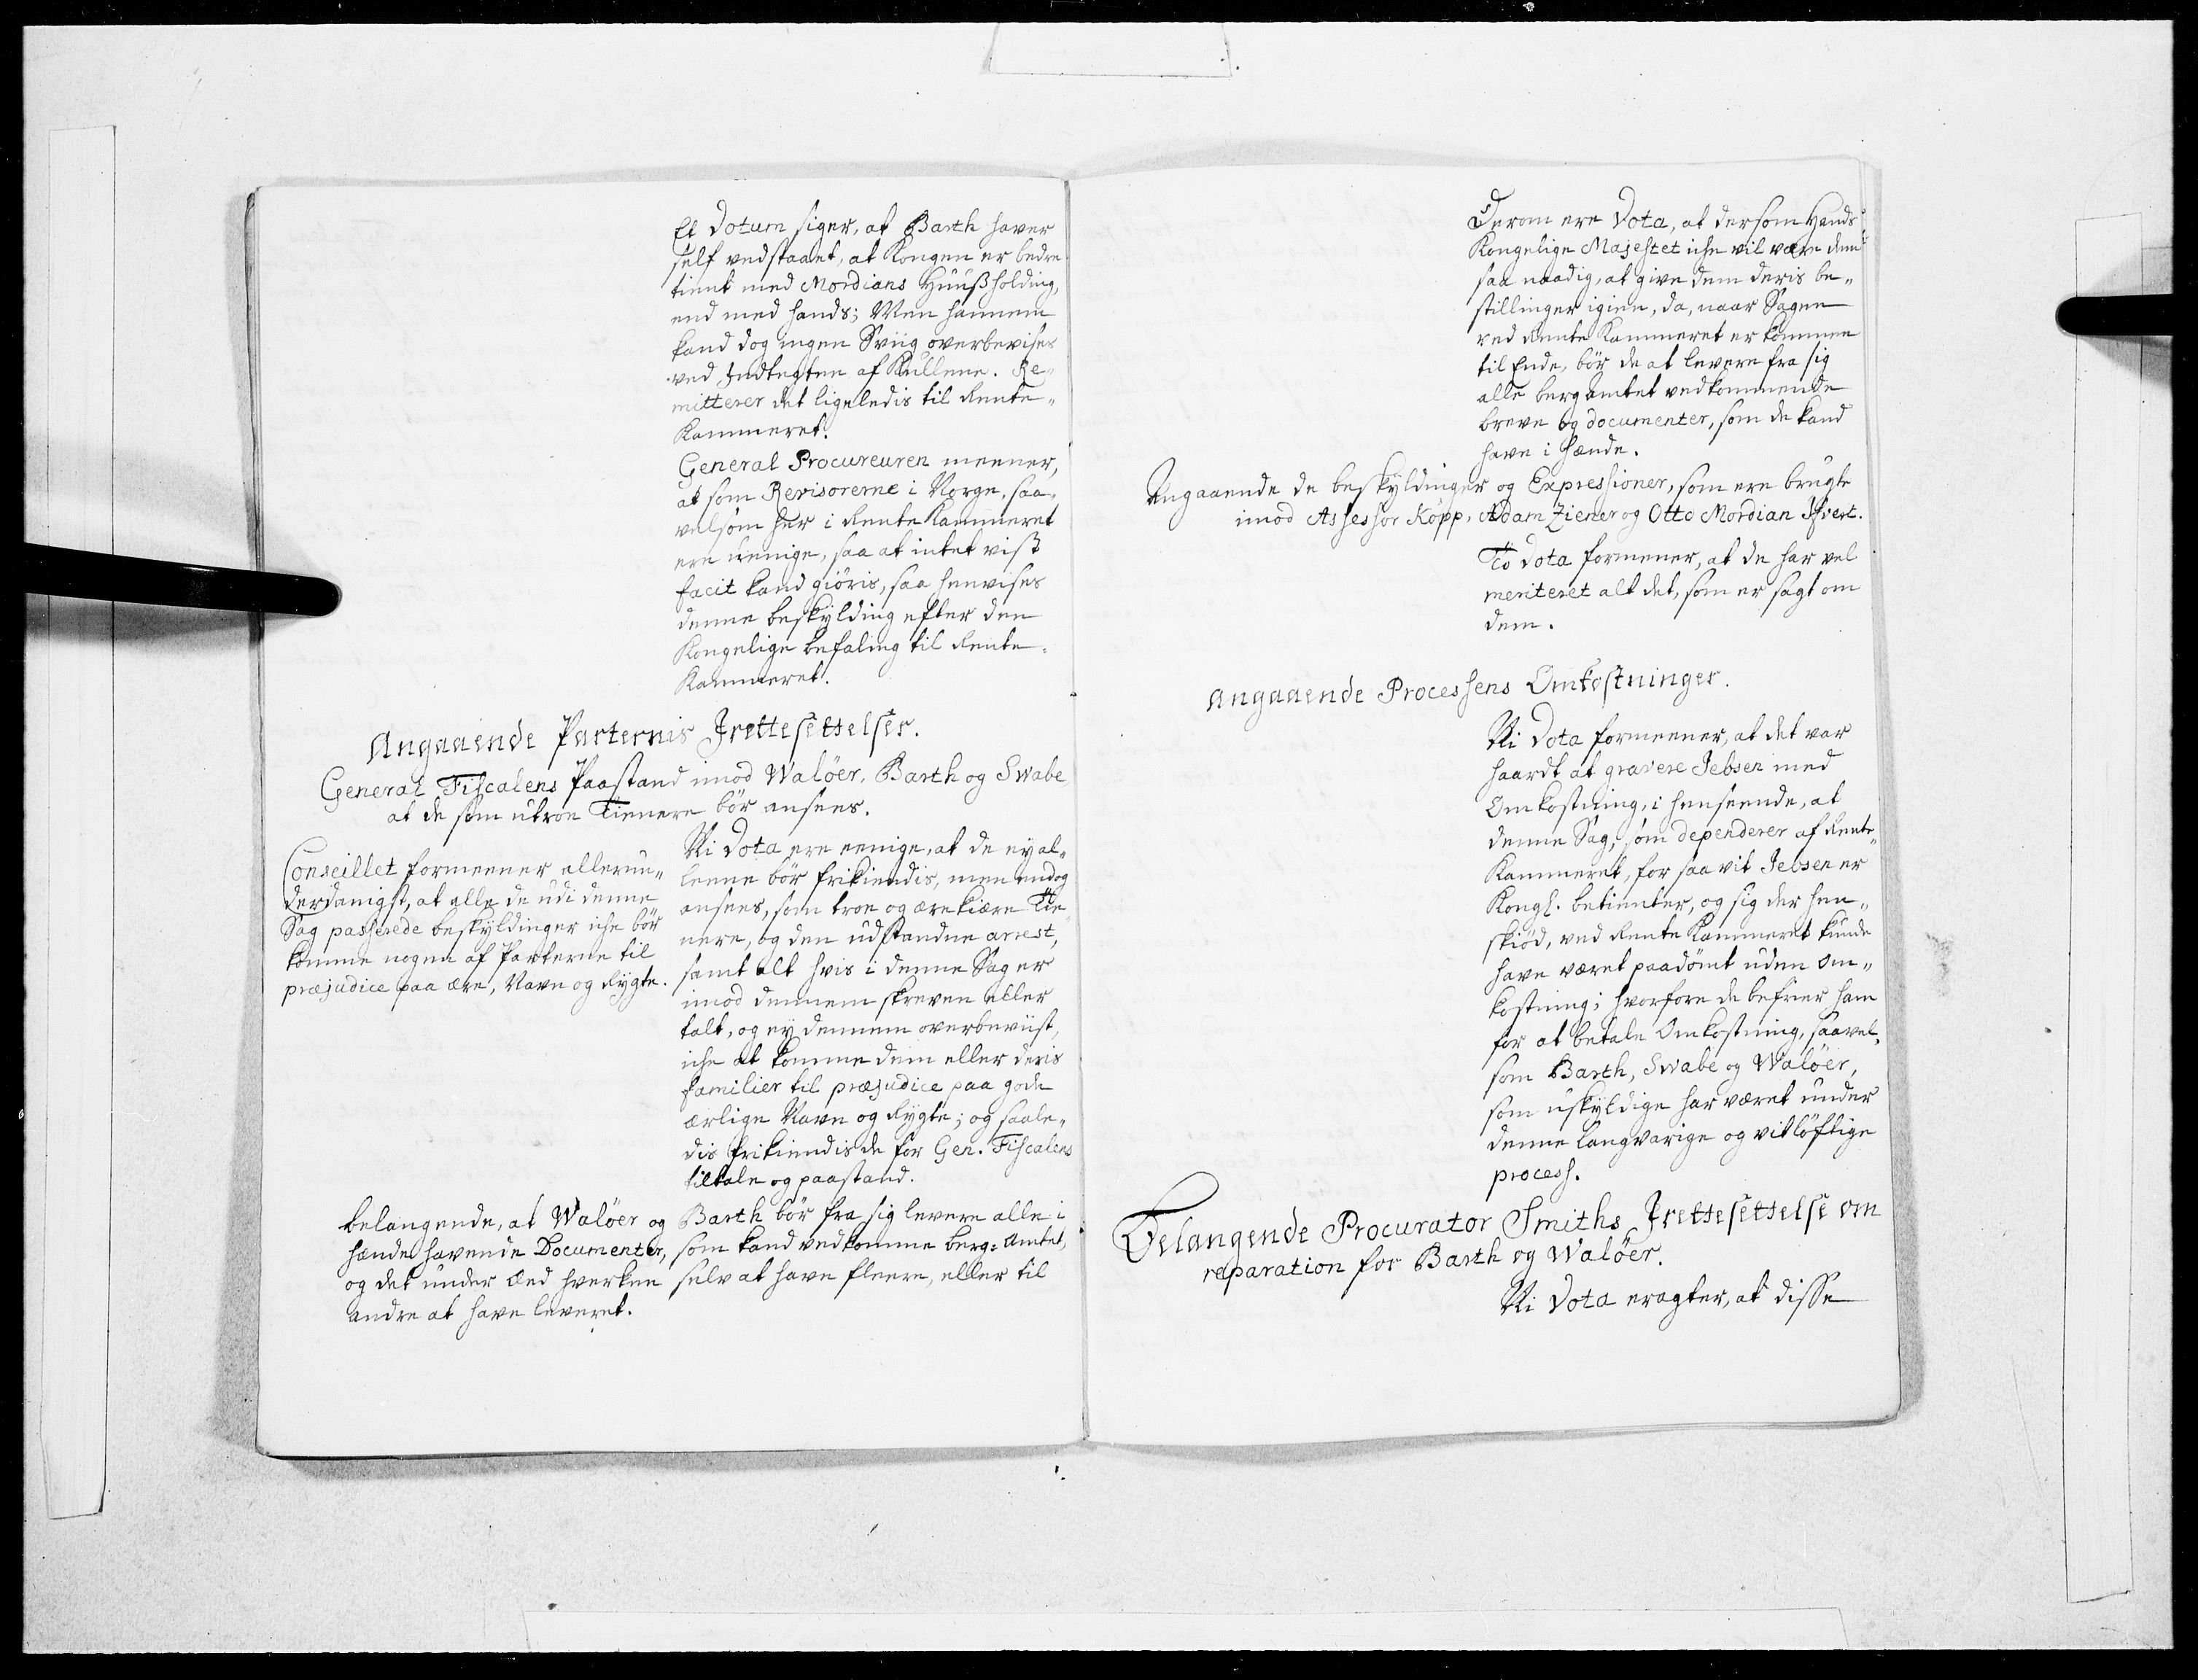 Et Votum siger, at Barth haver
self vedstaaet, at Kongen er bedre
tient med Mordians Huusholding,
end med hands; Men hannem
kand dog ingen Sviig overbevises
ved Indtegten af Kullene. Re-
mitterer det ligeledis til Rente-
Kammeret.
General Procureuren meener,
at som Revisorerne i Norge, saa-
velsom her i Rente Kammeret
ere uenige, saa at intet vist
facit kand giöris, saa henvises
denne beskylding efter den
Kongelige befaling til Rente-
Kammeret.
Angaaende Parternis Irettesettelser.
General Fiscalens Paastand imod Walöer, Barth og Swabe
at de som utroe Tienere bör ansees.
Conseillet formeener allerun-
derdanigst, at alle de udi denne
Sag passerede beskyldinger iche bör
komme nogen af Parterne til
præjudice paa ære, Navn og Rygte.
Ni Vota ere eenige, at de ey al-
leene bör frikiendis, men endog
ansees, som troe og ærekiære Tie-
nere, og den udstandne arrest,
samt alt hvis i denne Sag er
imod dennem skreven eller
talt, og ey dennem overbeviist,
iche at komme dem eller deris
familier til præjudice paa gode
ærlige Navn og Rygte; og saale-
dis frikiendis de for Gen. Fiscalens
tiltale og paastand.
belangende, at Walöer og Barth bör fra sig levere alle i
hænde havende Documenter, som kand vedkomme berg-Amtet,
og det under Eed hverken selv at have fleere, eller til
andre at have leveret.
Derom ere Vota, at dersom Hands
Kongelige Majestet iche vil være dem
saa naadig, at give dem deris be-
stillinger igien, da, naar Sagen
ved Rente Kammeret er kommen
til Ende, bör de at levere fra sig
alle berg Amtet vedkommende
breve og documenter, som de kand
have i hænde.
Angaaende de beskyldinger og Expressioner, som ere brugte
imod Assessor Köpp, Adam Ziener og Otto Mordian Ifvert.
To Vota formener, at de har vel
meriteret alt det, som er sagt om
dem.
Angaaende Processens Omkostninger.
Ni Vota formeener, at det var
haardt at gravere Jebsen med
Omkostning, i henseende, at
denne Sag, som dependerer af Rente-
Kammeret, for saa vit Jebsen er
Kongl. betienter, og sig der hen-
skiöd, ved Rente Kammeret kunde
have været paadömt uden Om-
kostning; hvorfore de befrier ham
for at betale Omkostning, saavel-
som Barth, Swabe og Walöer,
som uskyldige har været under
denne langvarige og vitlöftige
process.
Belangende Procurator Smiths Irettesettelse om
reparation for Barth og Walöer.
Ni Vota eragter, at disse